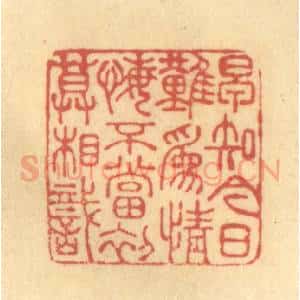 早知今日
難為情
悔不當初
莫相識
Shufawang.CN